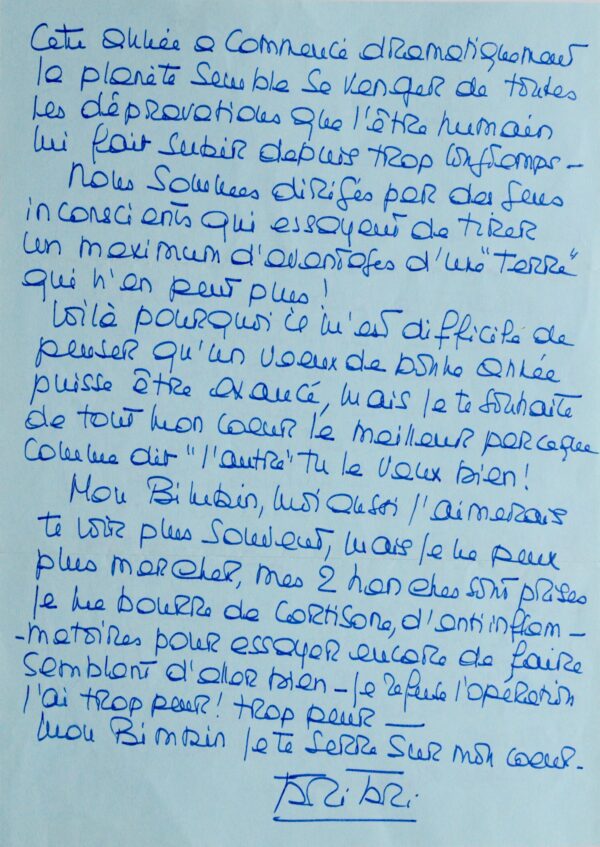 Cette année a commencé dramatiquement
la planète semble se venger de toutes
les dépravations que l'être humain
lui fait subir depuis trop longtemps -
Nous sommes dirigés par des gens
inconscients qui essayent de tirer
un maximum d'avantages d'une "terre"
qui n'en peut plus !
Voilà pourquoi il m'est difficile de
penser qu'un voeux de bonne année
puisse être exaucé, mais je te souhaite
de tout mon coeur le meilleur parceque
comme dit "l'autre" tu le vaux bien !
Mon Bimbin, moi aussi j'aimerais
te voir plus souvent, mais je ne peux
plus marcher, mes 2 hanches sont prises
je me bourre de cortisone, d'antiinflam-
-matoires pour essayer encore de faire
semblant d'aller bien - je refuse l'opération
j'ai trop peur ! trop peur —
Mon Bimbin je te serre sur mon coeur -
BRiBRi